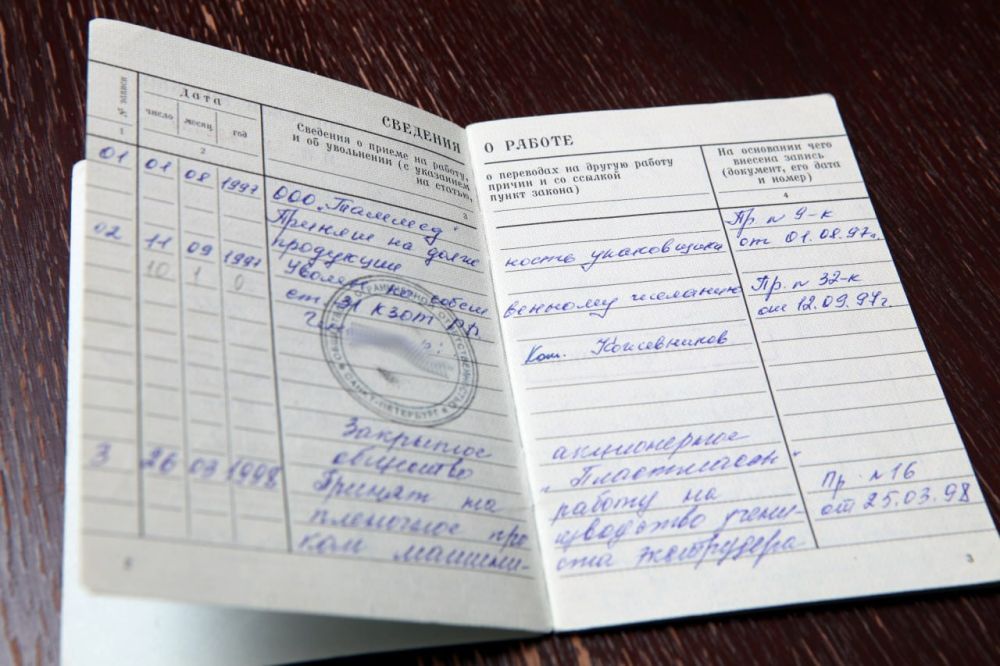 СВЕДЕНИЯ О РАБОТЕ
№ записи
Дата
число месяц год
Сведения о приеме на работу,
и об увольнении (с указанием
на статью,
о переводах на другую работу
причин и со ссылкой
пункт закона)
На основании чего
внесена запись
(документ, его дата
и номер)
1 2 3 4
01 01 08 1997 ООО „Таммед"
Принят на должность упаковщика Пр. n 9-к
продукции от 01.08.97г.
02 11 09 1997 Уволен по собственному желанию Пр. n 32-к
10 1 0 ст. 31 КЗОТ РФ. от 12.09.97г.
Кожевников
САНКТ-ПЕТЕРБУРГ
Закрытое акционерное
общество „Пластмассы"
3 26 03 1998 Принят на работу на Пр. n16
пленочное производство учени- от 25.03.98
ком машиниста экструдера
3